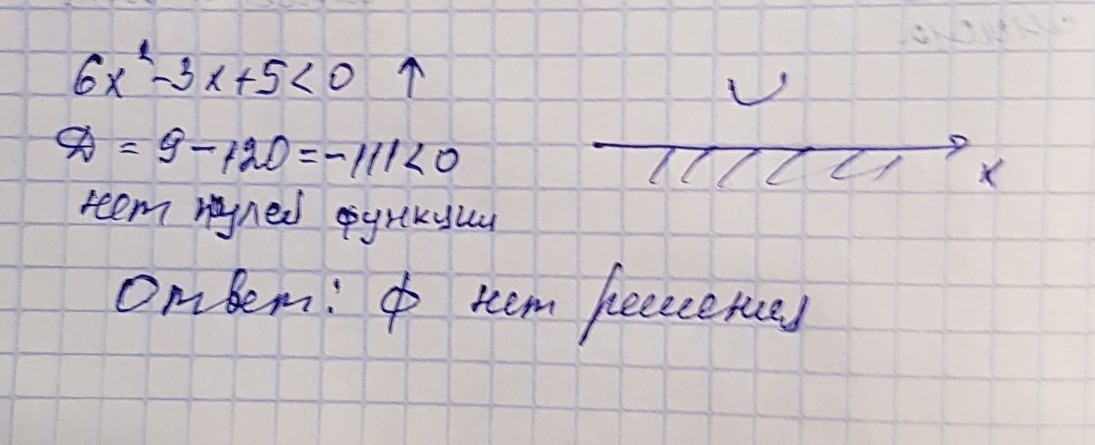 6x²-3x+5<0 ↑
Д = 9-120=-111<0
x
нет нулей функции
Ответ: ф нет решения